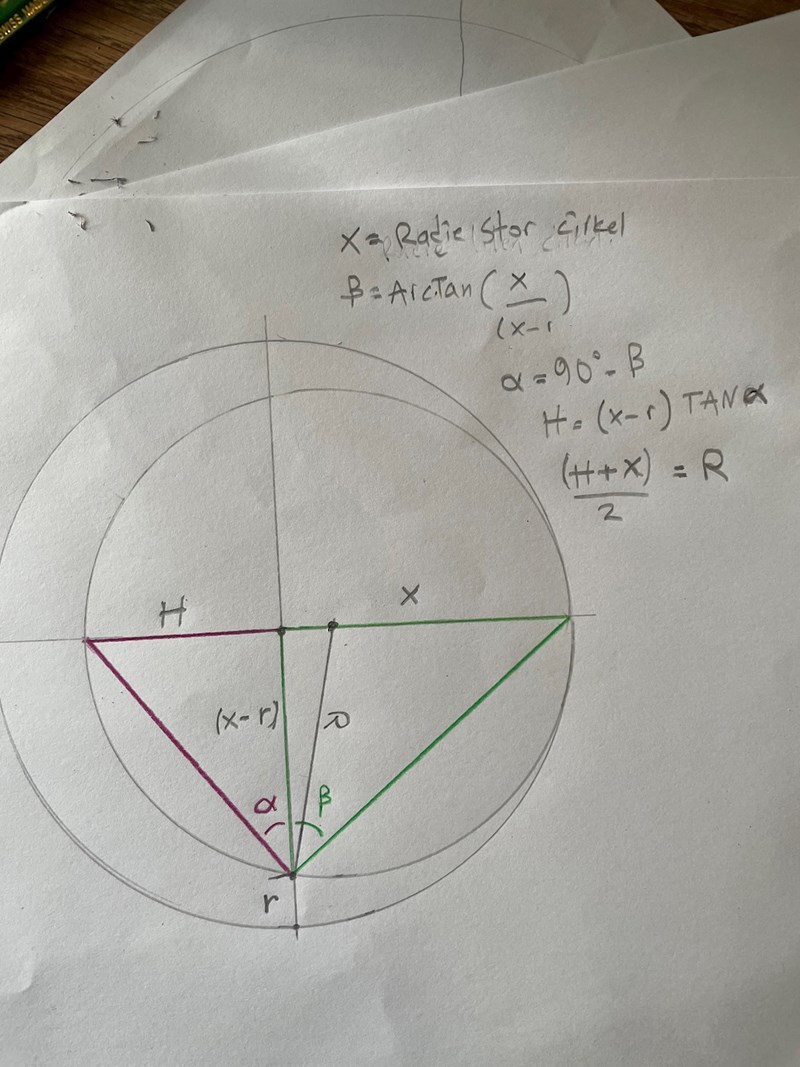 X = Radie Stor Cirkel
β = ArcTan ( X / (x-r )
α = 90° - β
H = (x-r) TAN α
(H+X) / 2 = R
H
X
(x-r)
R
α
β
r